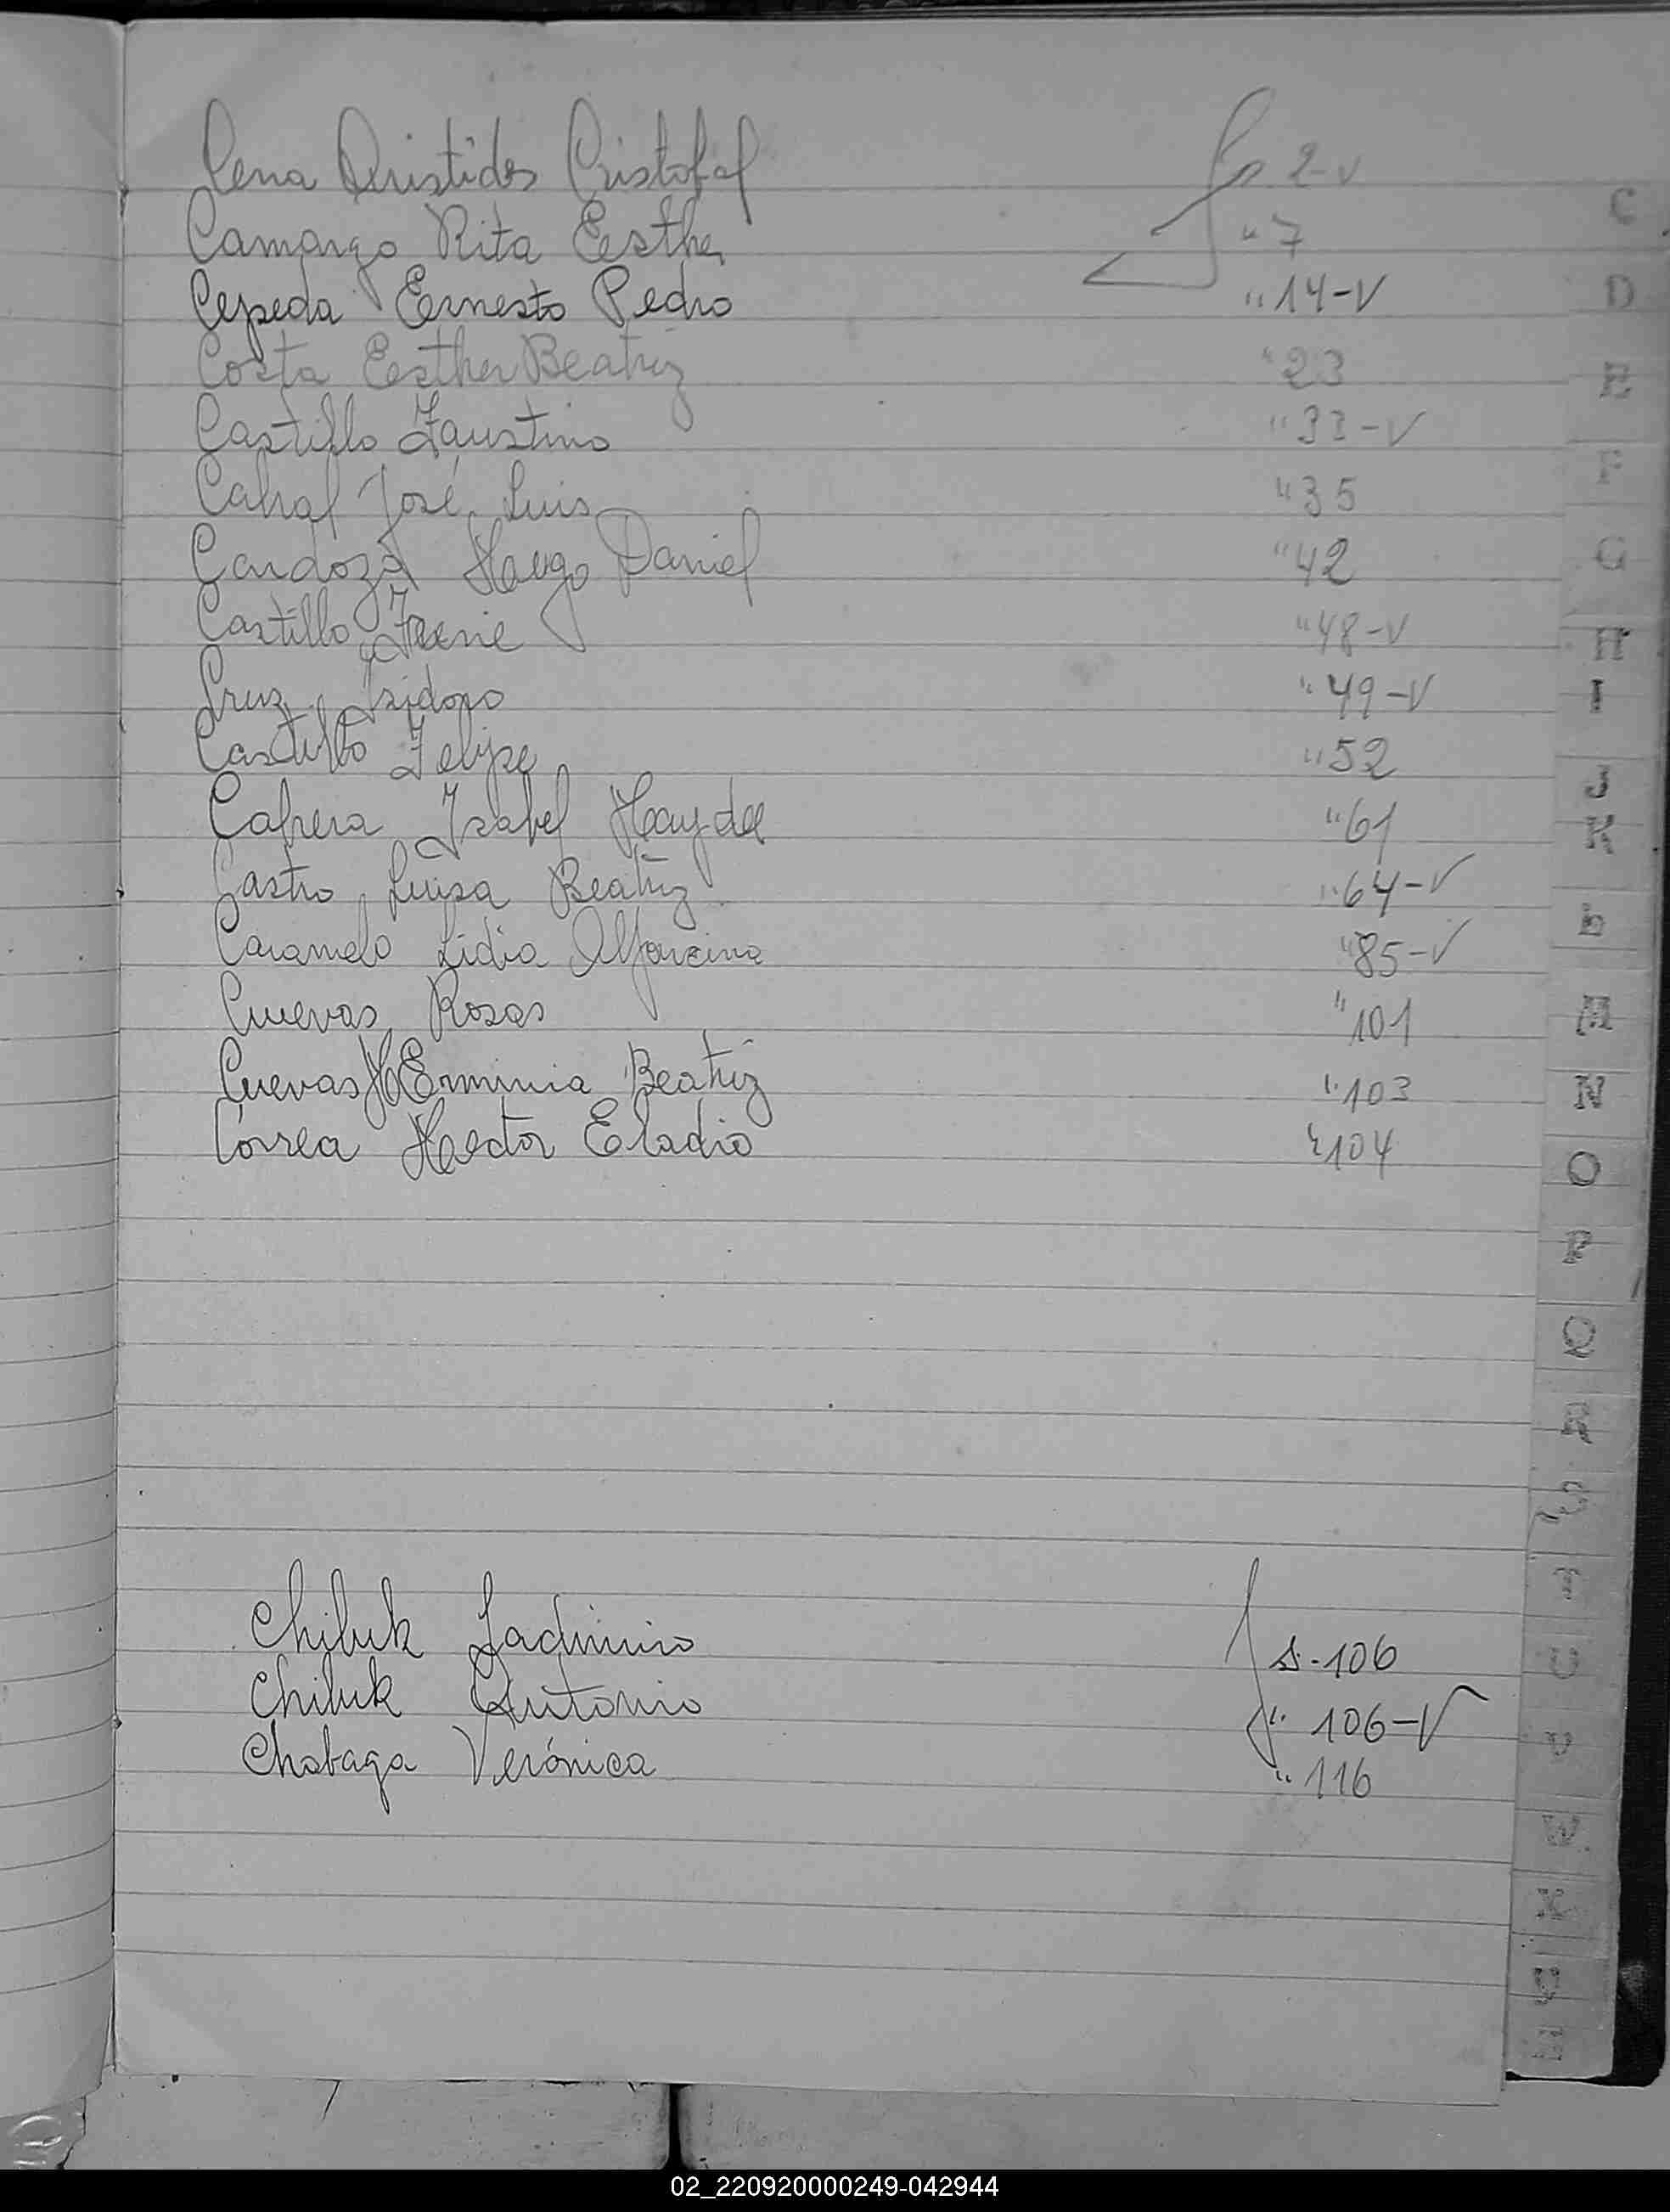 Cena Aristides Cristobal fs 2-v
Camargo Rita Eesther " 7
Cepeda Ernesto Pedro " 14-V
Costa Eesther Beatriz " 23
Castillo Faustino " 33-V
Cabral José Luis " 35
Cardozo Hugo Daniel " 42
Castillo Irene " 48-V
Cruz Isidoro " 49-V
Castillo Felipe " 52
Cabrera Isabel Haydee " 61
Castro Luisa Beatriz " 64-V
Caramelo Lidia Alfonsina " 85-V
Cuevas Rosas " 101
Cuevas HErminia Beatriz " 103
Correa Hector Eladio " 104
Chiluk Ladimiro fs. 106
Chiluk Antonio " 106-V
Chabaga Verónica " 116
C
D
E
F
G
H
I
J
K
L
M
N
O
P
Q
R
S
02_220920000249-042944